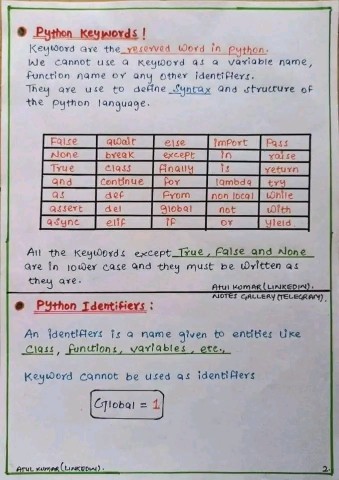 Python Keywords!
Keyword are the reserved word in Python.
We cannot use a keyword as a variable name,
function name or any other identifiers.
They are use to define Syntax and structure of
the python language.
False await else import Pass
None break except in raise
True class finally is return
and continue for lambda try
as def From non local While
assert del global not with
async elif if or yield
All the keywords except True, False and None
are in lower case and they must be written as
they are.
ATUL KUMAR (LINKEDIN).
NOTES GALLERY (TELEGRAM).
Python Identifiers:
An identifiers is a name given to entities like
Class, functions, variables, etc.,
Keyword cannot be used as identifiers
Global = 1
ATUL KUMAR (LINKEDIN).
2.